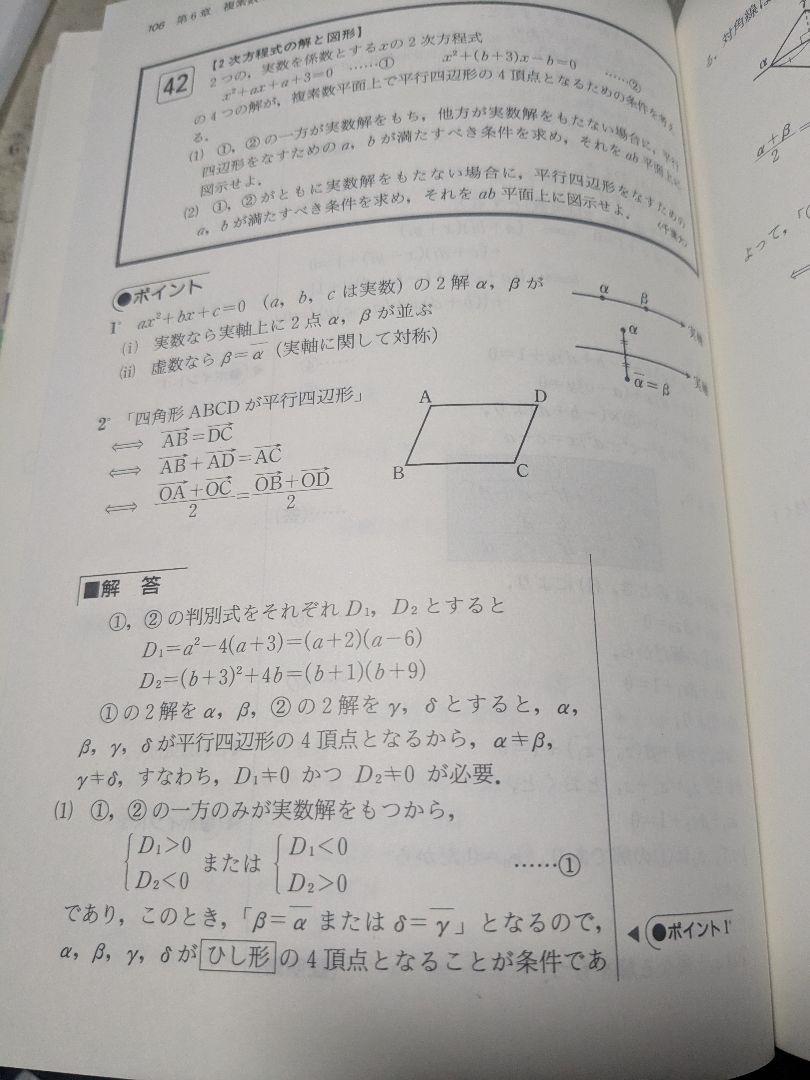 106 第6章 複素数
42
【2次方程式の解と図形】
2つの,実数を係数とするxの2次方程式
x²+ax+a+3=0 ……① x²+(b+3)x−b=0 ……②
の4つの解が,複素数平面上で平行四辺形の4頂点となるための条件を考え
る.
(1) ①,②の一方が実数解をもち,他方が実数解をもたない場合に,平行
四辺形をなすためのa,bが満たすべき条件を求め,それをab平面上に
図示せよ.
(2) ①,②がともに実数解をもたない場合に,平行四辺形をなすための
a,bが満たすべき条件を求め,それをab平面上に図示せよ.
●ポイント
1° ax²+bx+c=0 (a,b,cは実数)の2解α,βが
(i) 実数なら実軸上に2点α,βが並ぶ
(ii) 虚数なら β=α̅(実軸に関して対称)
α β 実軸
α
α̅=β 実軸
2° 「四角形ABCDが平行四辺形」
⟺ AB→=DC→
⟺ AB→+AD→=AC→
⟺ (OA→+OC→)/2=(OB→+OD→)/2
A D
B C
■解 答
①,②の判別式をそれぞれD₁,D₂とすると
D₁=a²−4(a+3)=(a+2)(a−6)
D₂=(b+3)²+4b=(b+1)(b+9)
①の2解をα,β,②の2解をγ,δとすると,α,
β,γ,δが平行四辺形の4頂点となるから,α≠β,
γ≠δ,すなわち,D₁≠0 かつ D₂≠0 が必要.
(1) ①,②の一方のみが実数解をもつから,
{D₁>0 または {D₁<0
D₂<0 D₂>0 ……①
であり,このとき,「β=α̅ または δ=γ̅」となるので,
◀●ポイント1°
α,β,γ,δが ひし形 の4頂点となることが条件であ
対角線は
α
(α+β)/2=
よって,「(